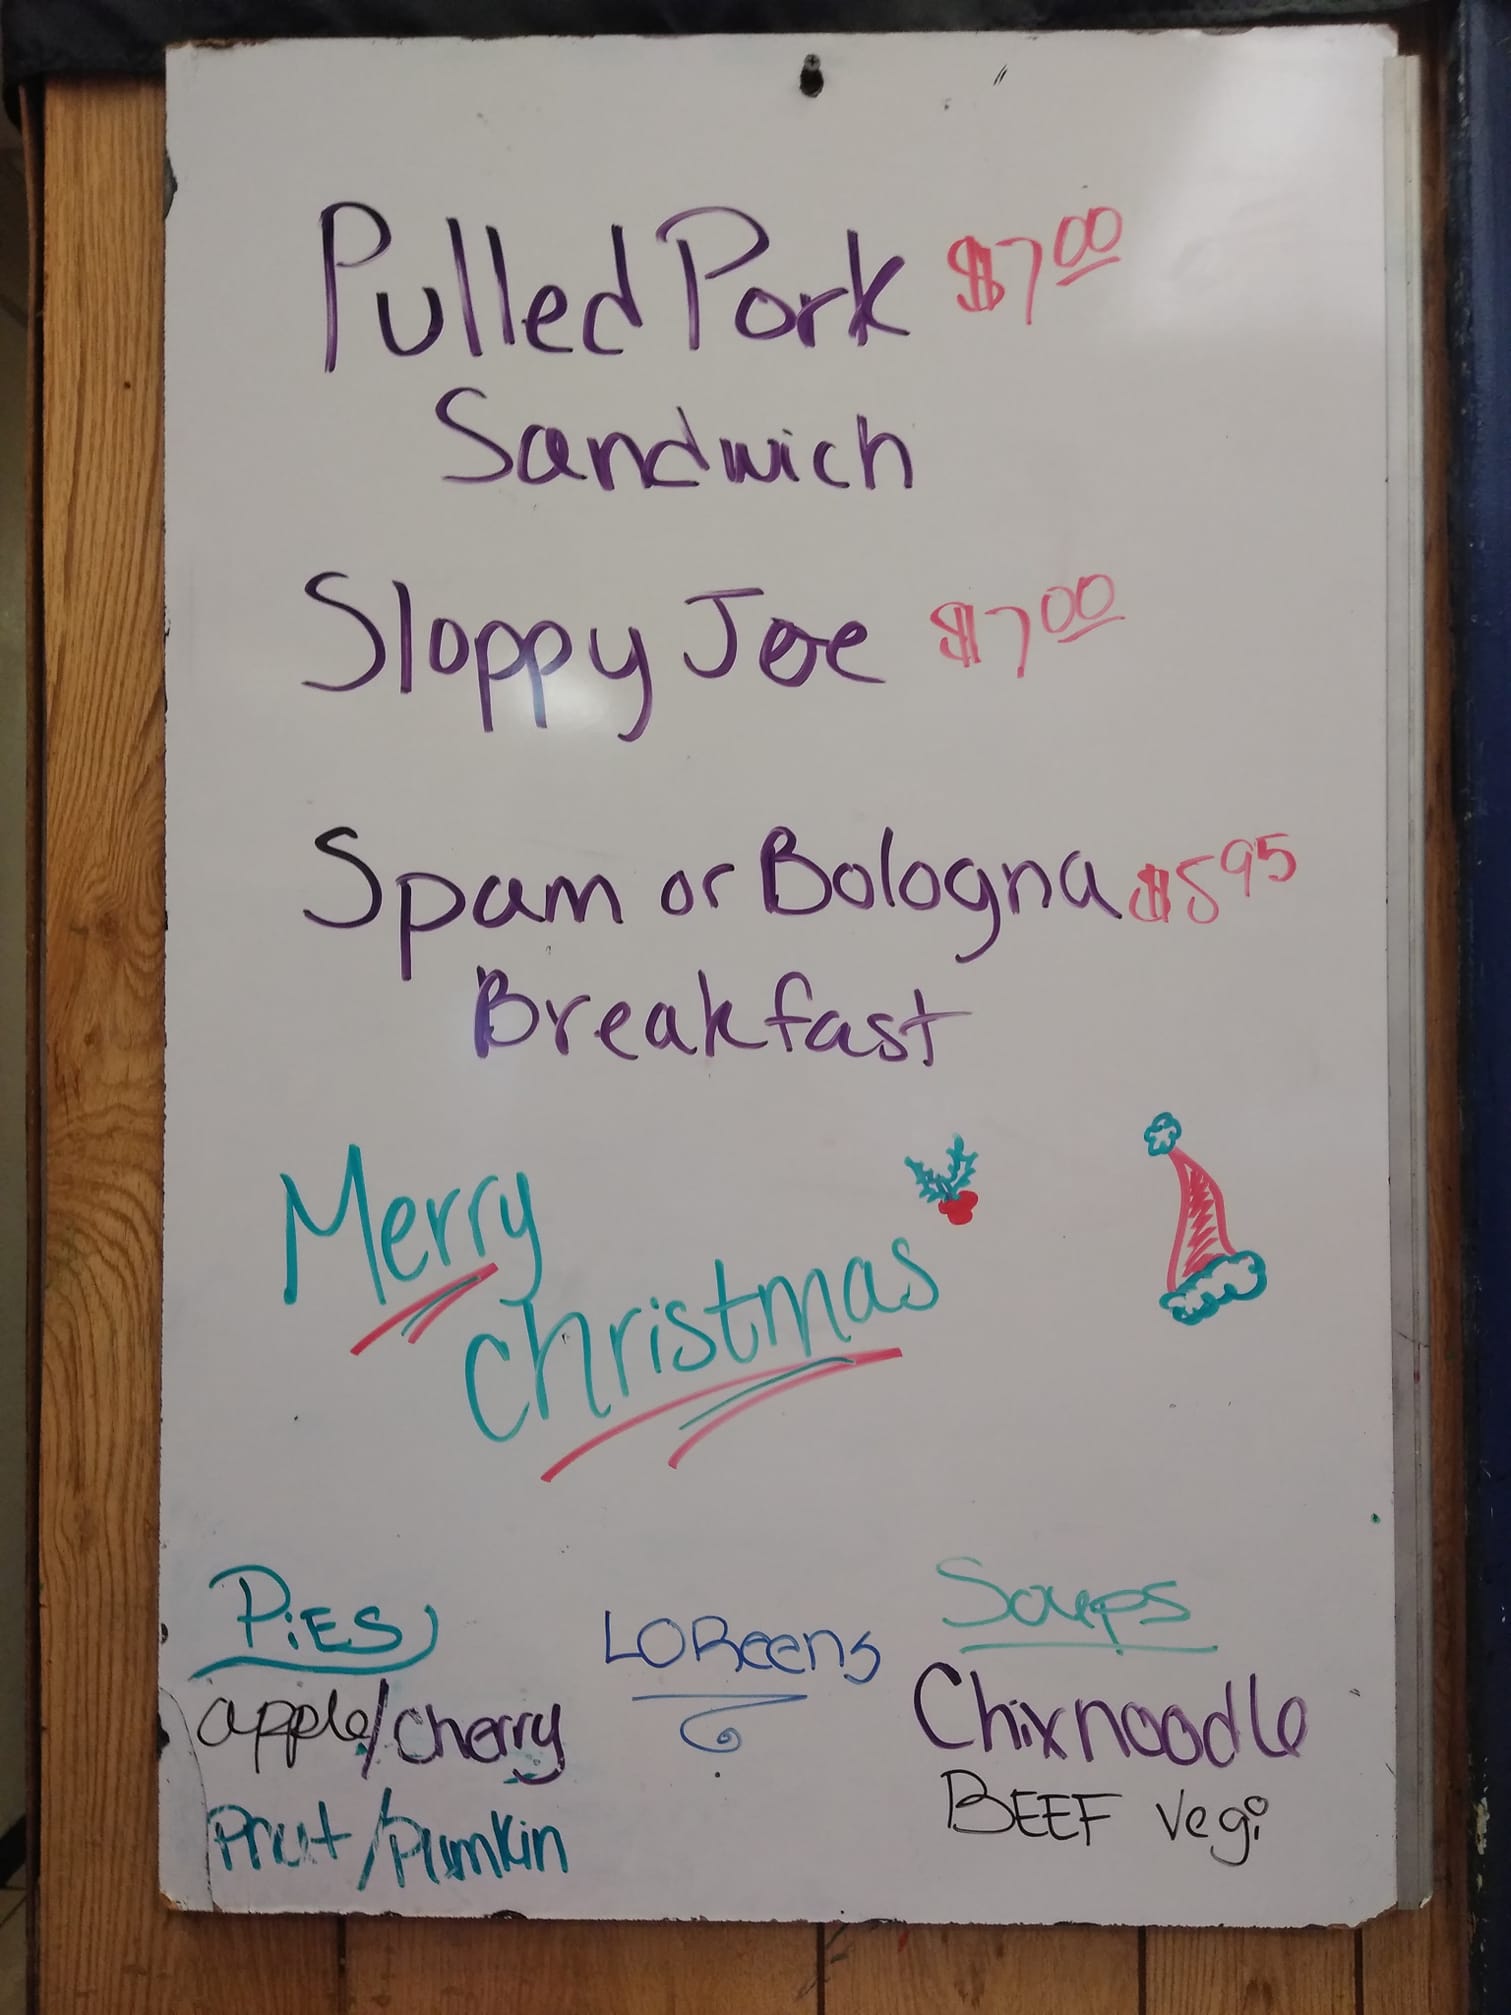 Pulled Pork $7.00
Sandwich
Sloppy Joe $7.00
Spam or Bologna $5.95
Breakfast
Merry
Christmas
PiES
apple/cherry
Prut/Pumkin
LOReens
Soups
Chixnoodle
BEEF Vegi